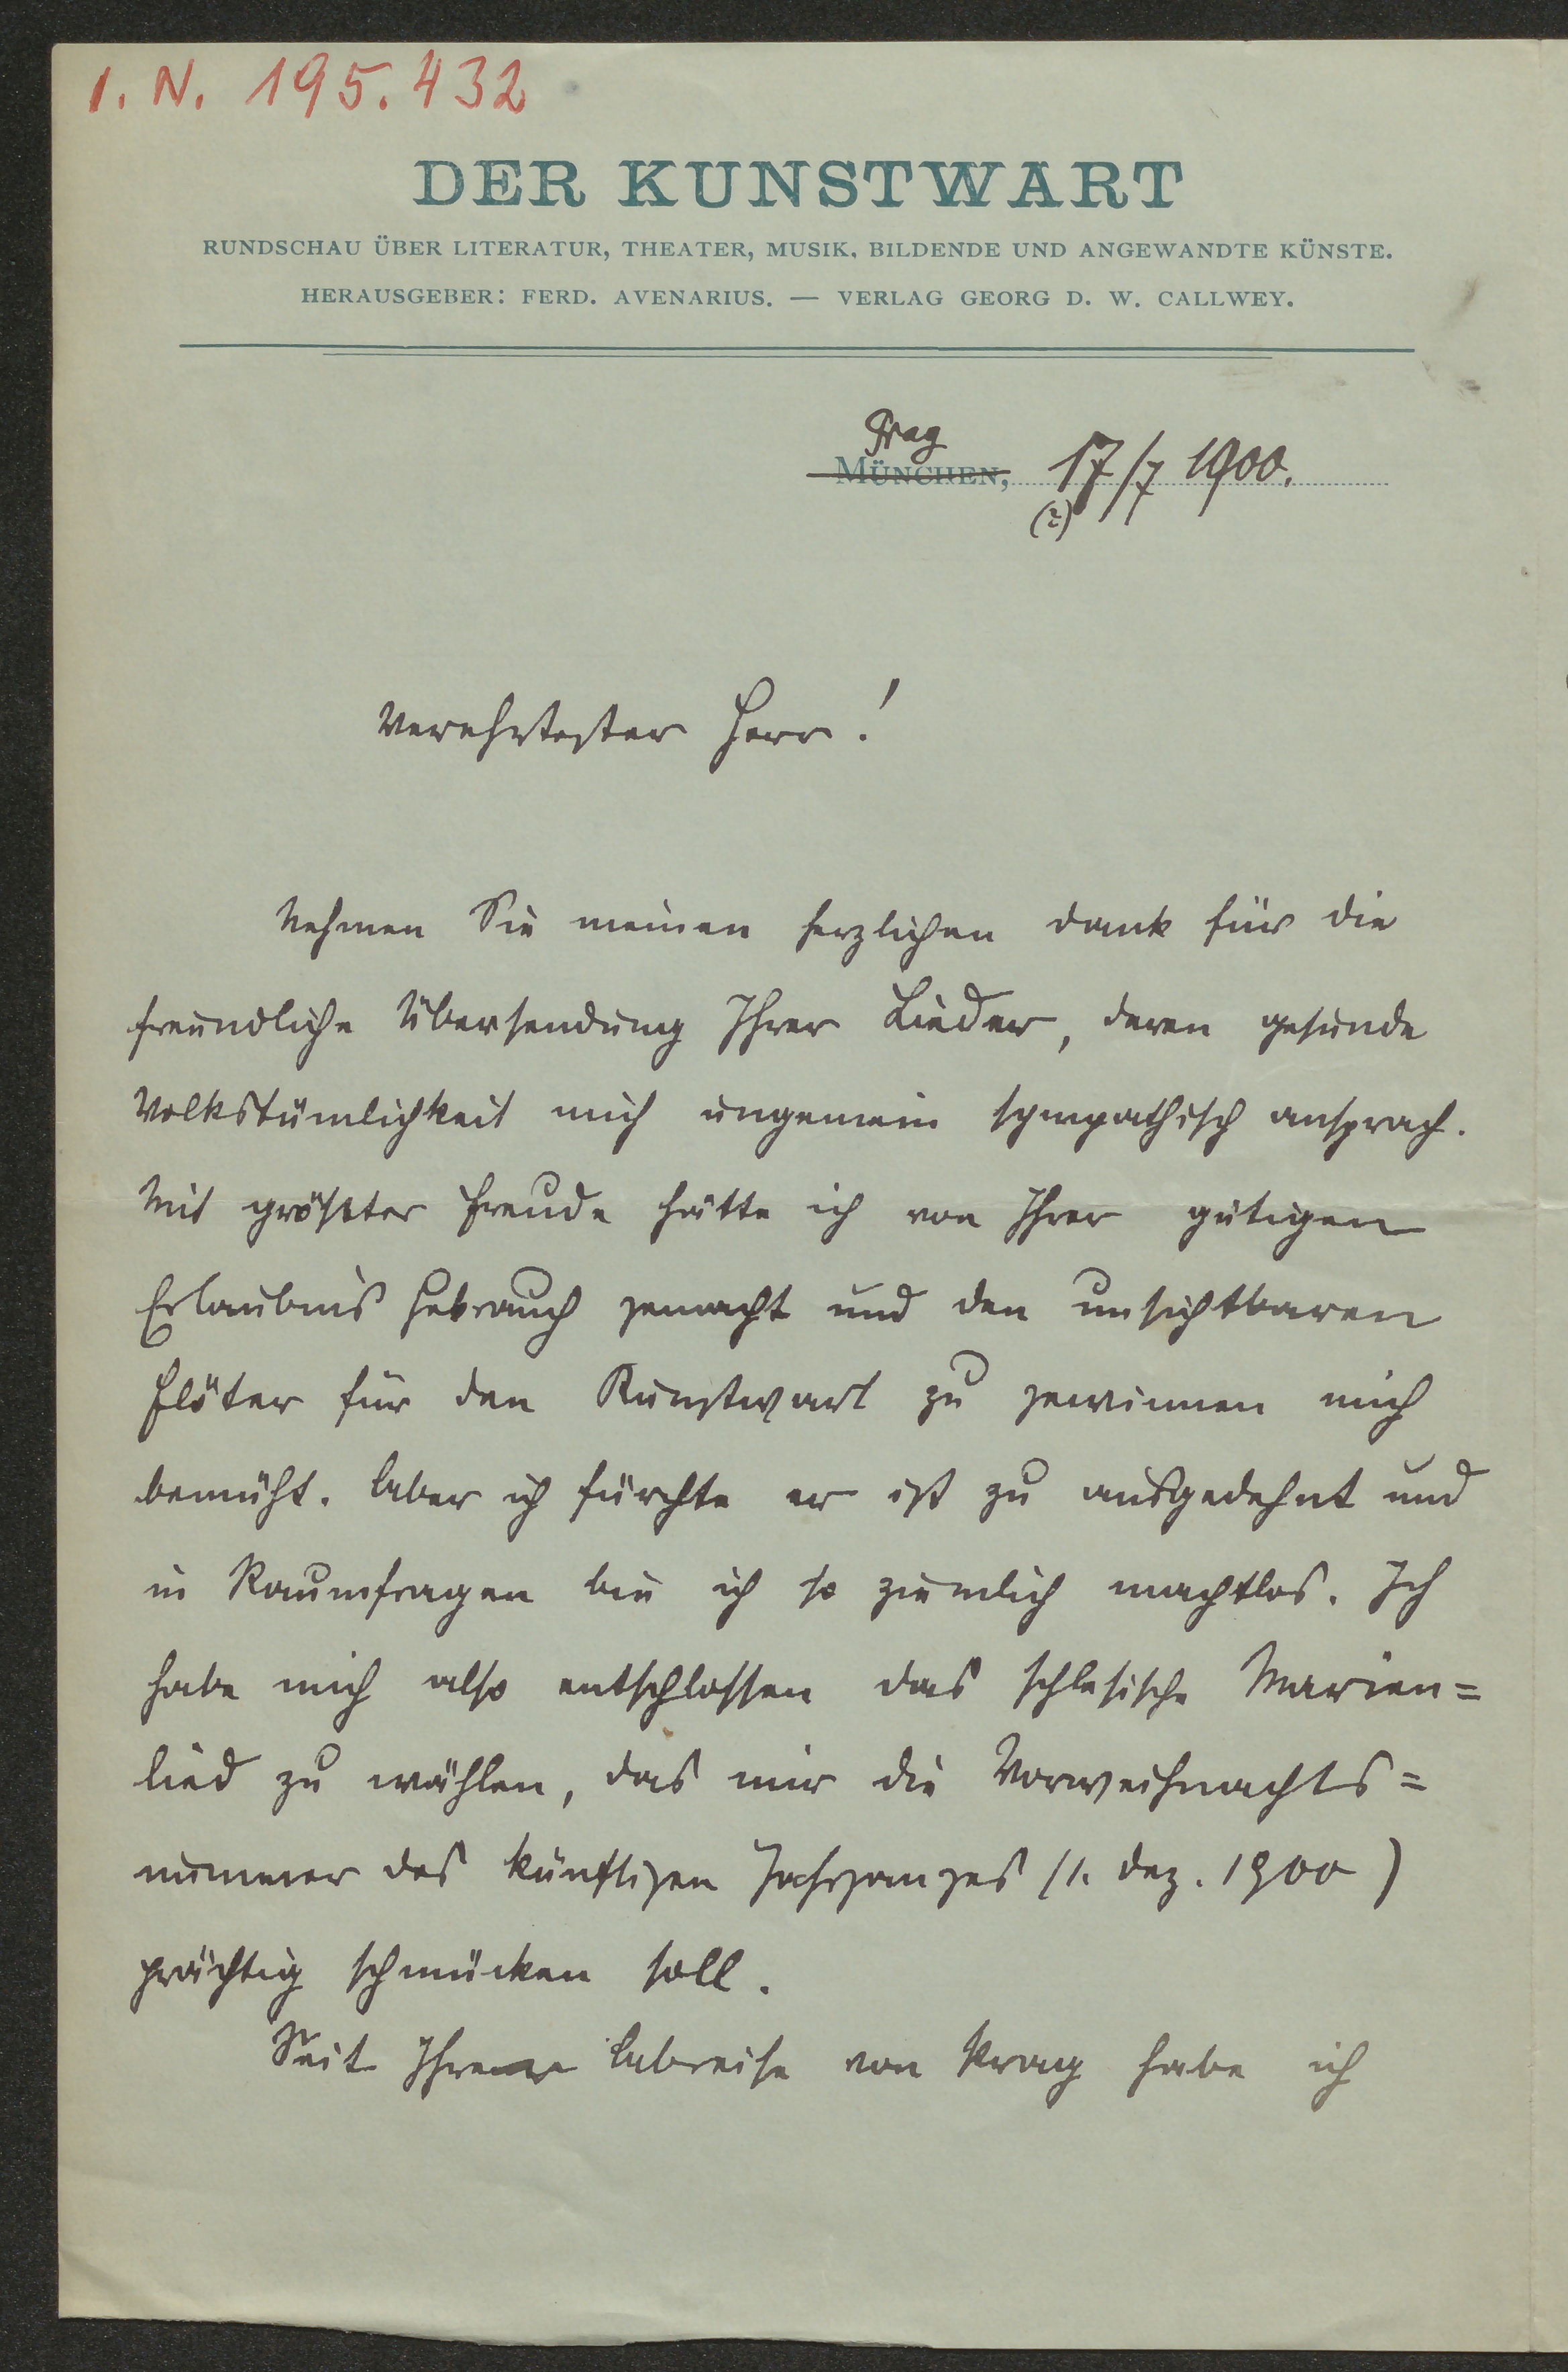 I. N. 195.432
DER KUNSTWART
RUNDSCHAU ÜBER LITERATUR, THEATER, MUSIK, BILDENDE UND ANGEWANDTE KÜNSTE.
HERAUSGEBER: FERD. AVENARIUS. — VERLAG GEORG D. W. CALLWEY.
Prag
MÜNCHEN, 17/7 1900.
(?)
Verehrtester Herr!
Nehmen Sie meinen herzlichen Dank für die
freundliche Übersendung Ihrer Lieder, deren gesunde
Volkstümlichkeit mich ungemein sympathisch ansprach.
Mit größter Freude hätte ich von Ihrer gütigen
Erlaubnis Gebrauch gemacht und den unsichtbaren
Flöter für den Kunstwart zu gewinnen mich
bemüht. Aber ich fürchte er ist zu ausgedehnt und
in Raumfragen bin ich so ziemlich machtlos. Ich
habe mich also entschlossen das schlesische Marien=
lied zu wählen, das mir die Vorweihnachts=
nummer des künftigen Jahrganges (1. Dez. 1900)
prächtig schmücken soll.
Seit Ihrer Abreise von Prag habe ich